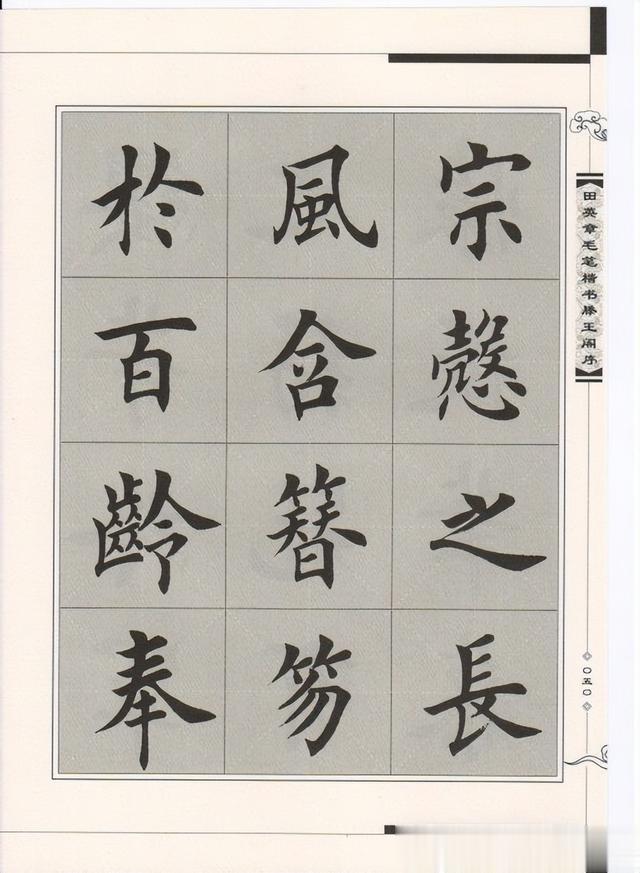 宗愨之長
風舍簪笏
於百齡奉
田英章毛笔楷书滕王阁序
〇五〇